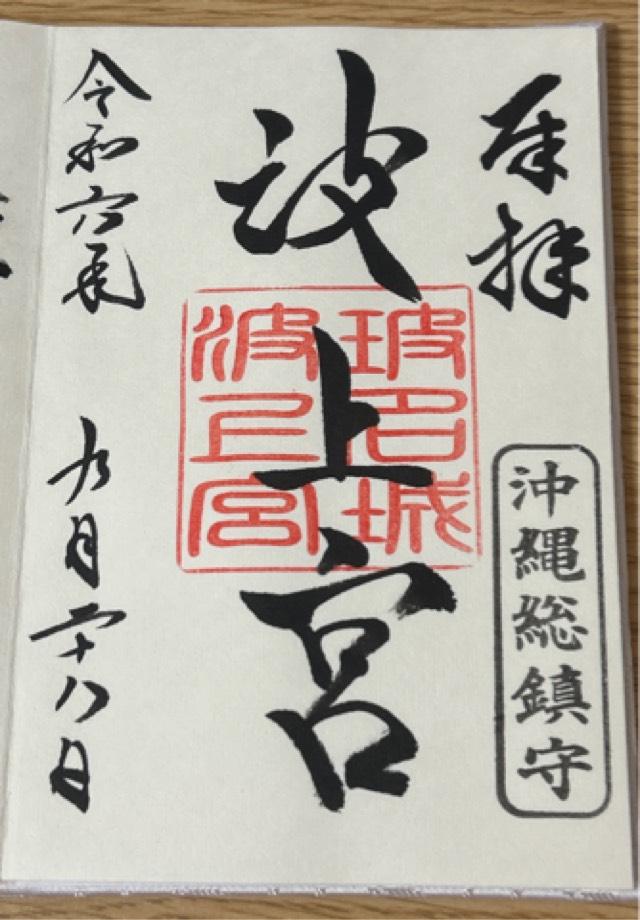 奉拝
沖縄総鎮守
波上宮
玻名城
波上宮
令和六年 九月二十八日